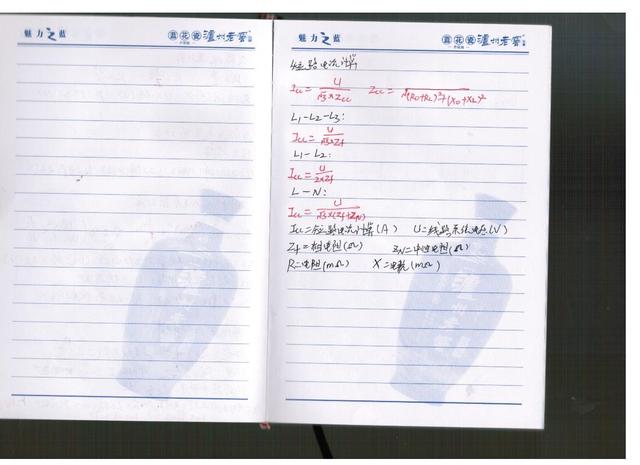 魅力之蓝
蓝花瓷 泸州老窖
魅力之蓝
蓝花瓷 泸州老窖
短路电流计算
Icc = U/√3×Zcc Zcc = /√(R0+RL)²+(X0+XL)²
L1-L2-L3:
Icc = U/√3×Zf
L1-L2:
Icc = U/2×Zf
L-N:
Icc = U/√3×(Zf+ZN)
Icc=短路电流计算(A) U=线路系统电压(V)
Zf=相电阻(Ω) ZN=中性电阻(Ω)
R=电阻(mΩ) X=电抗(mΩ)